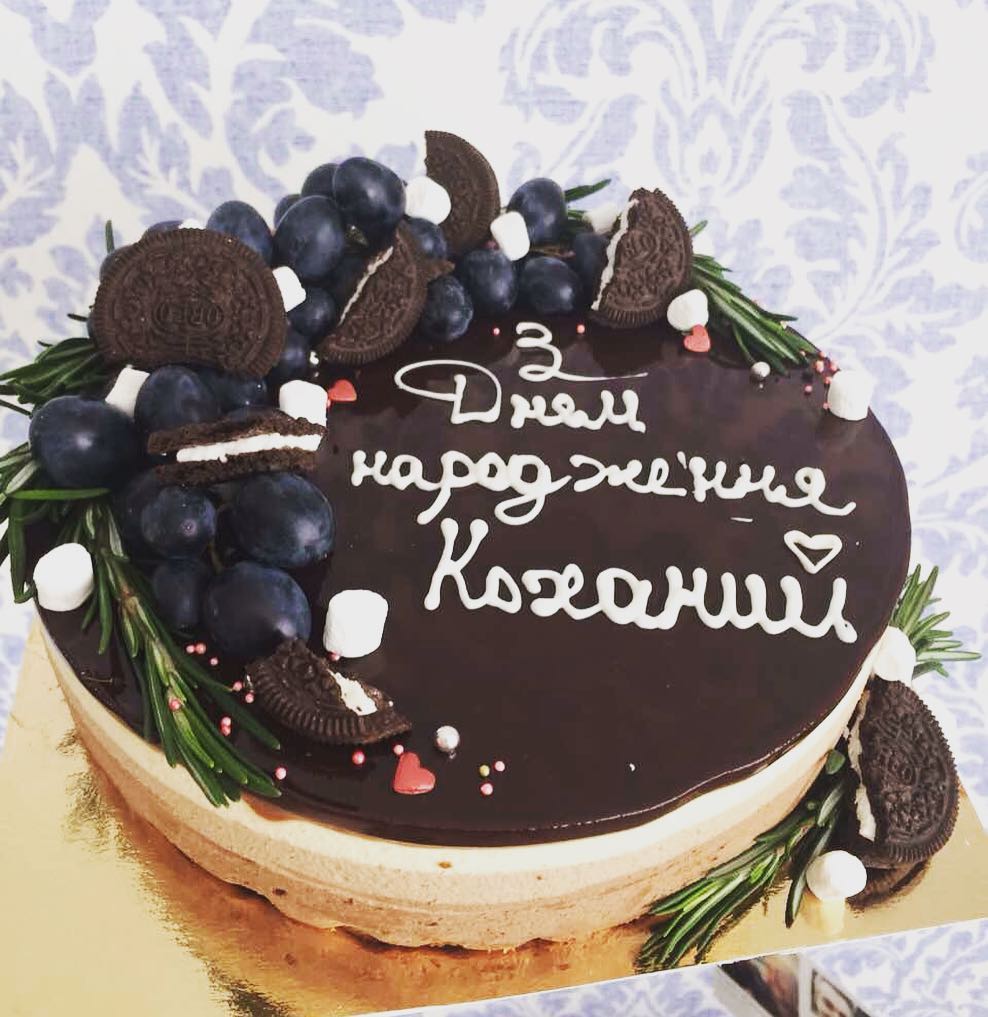 З
Днем
народження
Коханий